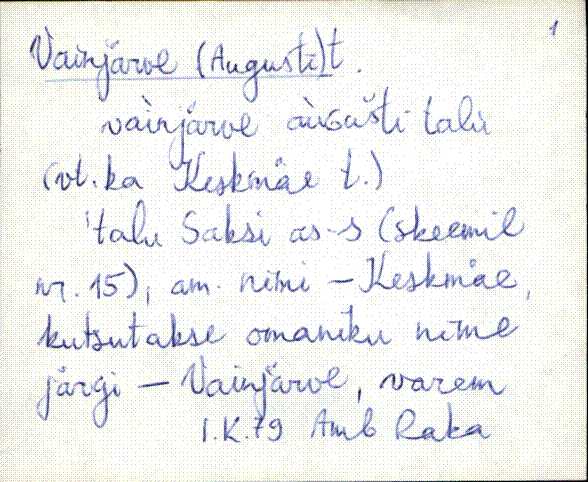 1
Vainjärve (Augusti) t.
vàinjärve àùGušti talu
(vt. ka Keskmäe t.)
'talu Saksi as-s (skeemil
nr. 15), am. nimi – Keskmäe,
kutsutakse omaniku nime
järgi – Vainjärve, varem
I.K.79 Amb Raka